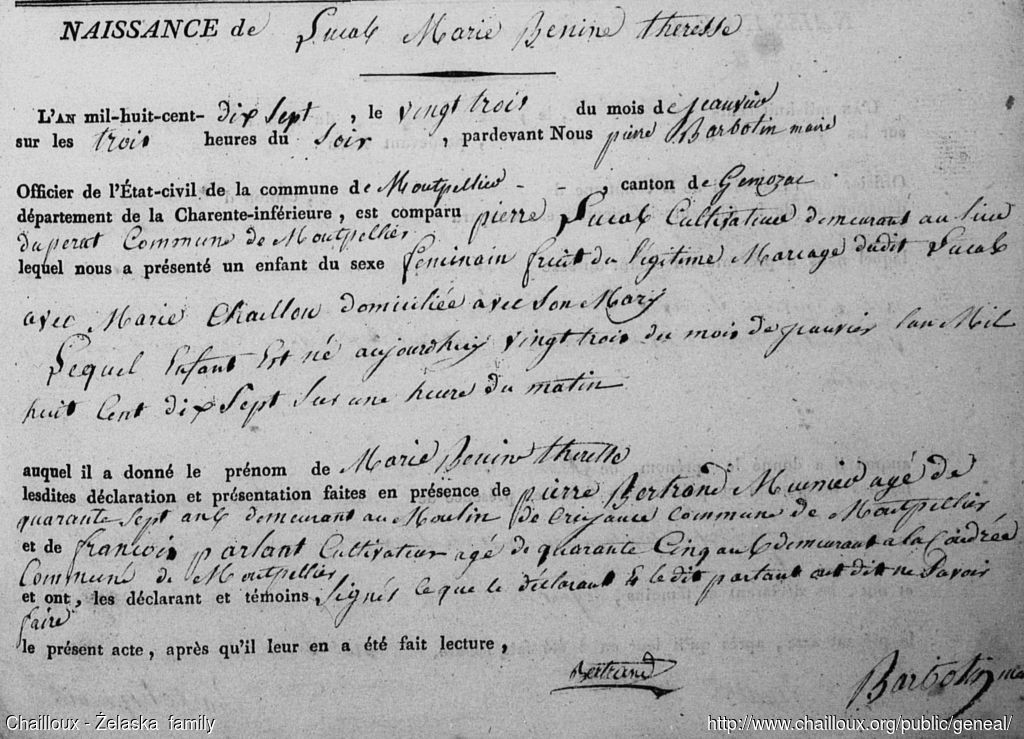 NAISSANCE de Lucas Marie Benine theresse
L'AN mil-huit-cent- dix sept , le vingt trois du mois de jeanvier
sur les trois heures du soir , pardevant Nous pierre Barbotin maire
Officier de l'État-civil de la commune de Montpellier - - , canton de Gemozac
département de la Charente-inférieure , est comparu pierre Lucas Cultivateur demeurant au lieu
du perat Commune de Montpellier
lequel nous a présenté un enfant du sexe feminain fruit du légitime Mariage dudit Lucas
avec Marie Chaillou domiciliée avec son Mary
Lequel Enfant Est né aujourdhuy vingt trois du mois de janvier lan Mil
huit Cent dix Sept sur une heure du matin
auquel il a donné le prénom de Marie Benine theresse
lesdites déclaration et présentation faites en présence de pierre Bertrand Munier agé de
quarante sept ans demeurant au Moulin de commune de Montpellier,
et de francois parlant Cultivateur agé de quarante Cinq ans demeurant a la
Commune de Montpellier
et ont , les déclarant et témoins, signés ce que le déclarant & le dit parlant ont dit ne savoir
faire
le présent acte , après qu'il leur en a été fait lecture ,
Bertrand
Barbotin
Chailloux - Żelaska family
http://www.chailloux.org/public/geneal/